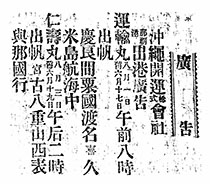 廣告
沖繩開運株式會社
出港廣告
運輸丸 六月十七日 午前八時
出帆
慶良間粟國渡名喜久
米島航海中
仁壽丸 八月三日 午后二時
出帆 宮古八重山西表
與那國行